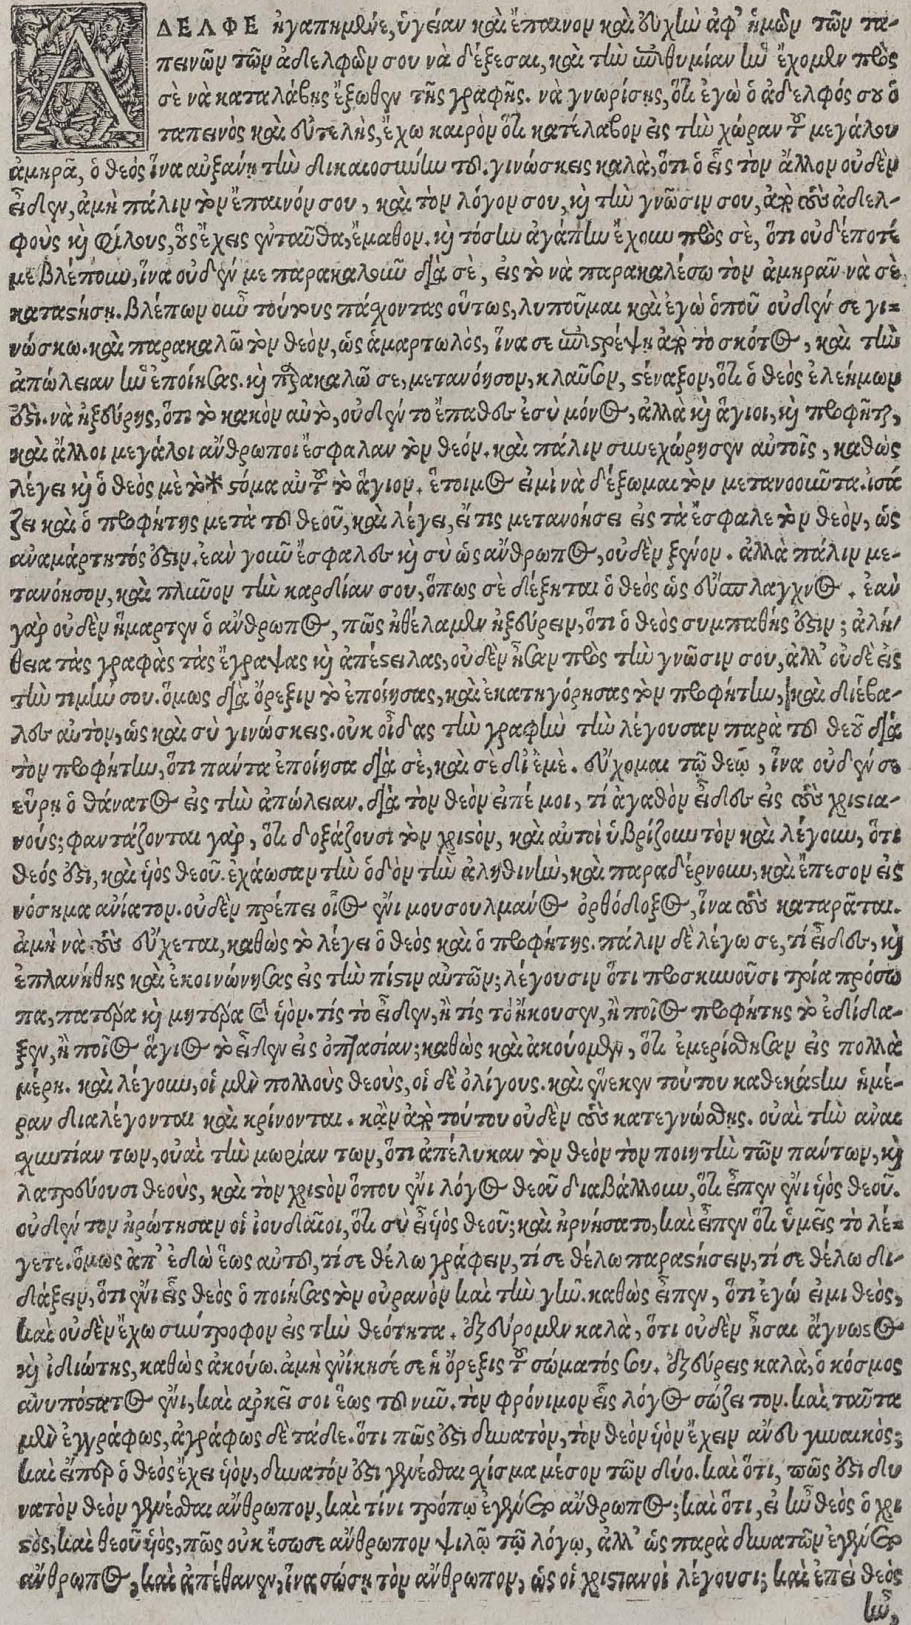 ΑΔΕΛΦΕ ἠγαπημένε, ὑγείαν καὶ ἔπαινον καὶ εὐχὴν ἀφ' ἡμῶν τῶν τα-
πεινῶν τῶν ἀδελφῶν σου νὰ δέξεσαι, καὶ τὴν ἐπιθυμίαν ἣν ἔχομεν πρὸς
σὲ νὰ καταλάβης ἔξωθεν τῆς γραφῆς. νὰ γνωρίσης, ὅτι ἐγὼ ὁ ἀδελφός σου ὁ
ταπεινὸς καὶ εὐτελὴς, ἔχω καιρὸν ὅτι κατέλαβον εἰς τὴν χώραν τοῦ μεγάλου
ἀμηρᾶ, ὁ θεὸς ἵνα αὐξαίνῃ τὴν δικαιοσύνην του. γινώσκεις καλὰ, ὅτι ὁ εἷς τὸν ἄλλον οὐδὲν
εἶδεν, ἀμὴ πάλιν τὸν ἔπαινόν σου, καὶ τὸν λόγον σου, καὶ τὴν γνῶσιν σου, ἀπὸ τοὺς ἀδελ-
φοὺς καὶ φίλους, οὓς ἔχεις ἐνταῦθα, ἔμαθον. καὶ τόσην ἀγάπην ἔχουν πρὸς σὲ, ὅτι οὐδέποτέ
με βλέπουν, ἵνα οὐδέν με παρακαλοῦν διὰ σὲ, εἰς τὸ νὰ παρακαλέσω τὸν ἀμηρᾶν νὰ σὲ
καταστήσῃ. βλέπων οὖν τούτους πάσχοντας οὕτως, λυποῦμαι καὶ ἐγὼ ὁποῦ οὐδέν σε γι-
νώσκω. καὶ παρακαλῶ τὸν θεὸν, ὡς ἁμαρτωλὸς, ἵνα σε ἐπιστρέψῃ ἀπὸ τὸ σκότος, καὶ τὴν
ἀπώλειαν ἣν ἐποίησας. καὶ παρακαλῶ σε, μετανόησον, κλαῦσον, στέναξον, ὅτι ὁ θεὸς ἐλεήμων
ἐστί. νὰ ἠξεύρης, ὅτι τὸ κακὸν αὐτὸ, οὐδέν το ἔπαθες ἐσὺ μόνος, ἀλλὰ καὶ ἅγιοι, καὶ προφῆται,
καὶ ἄλλοι μεγάλοι ἄνθρωποι ἔσφαλαν τὸν θεόν. καὶ πάλιν συνεχώρησεν αὐτοῖς, καθὼς
λέγει καὶ ὁ θεὸς μὲ τὸ * στόμα αὐτοῦ τὸ ἅγιον. ἕτοιμος εἰμὶ νὰ δέξωμαι τὸν μετανοοῦντα. ἰσά
ζει καὶ ὁ προφήτης μετὰ τοῦ θεοῦ, καὶ λέγει, εἴ τις μετανοήσει εἰς τὰ ἔσφαλε τὸν θεὸν, ὡς
ἀναμάρτητός ἐστιν. ἐὰν γοῦν ἔσφαλες καὶ σὺ ὡς ἄνθρωπος, οὐδὲν ξένον. ἀλλὰ πάλιν με-
τανόησον, καὶ πλῦνον τὴν καρδίαν σου, ὅπως σὲ δέξηται ὁ θεὸς ὡς εὔσπλαγχνος. ἐὰν
γὰρ οὐδὲν ἥμαρτεν ὁ ἄνθρωπος, πῶς ἠθέλαμεν ἠξεύρειν, ὅτι ὁ θεὸς συμπαθής ἐστιν; ἀλή/
θεια τὰς γραφὰς τὰς ἔγραψας καὶ ἀπέστειλας, οὐδὲν ἦσαν πρὸς τὴν γνῶσιν σου, ἀλλ' οὐδὲ εἰς
τὴν τιμήν σου. ὅμως διὰ ὄρεξιν τὸ ἐποίησας, καὶ ἐκατηγόρησας τὸν προφήτην, καὶ διέβα-
λες αὐτὸν, ὡς καὶ σὺ γινώσκεις. οὐκ οἶδας τὴν γραφὴν τὴν λέγουσαν παρὰ τοῦ θεοῦ διὰ
τὸν προφήτην, ὅτι πάντα ἐποίησα διὰ σὲ, καὶ σὲ δι' ἐμέ. εὔχομαι τῷ θεῷ, ἵνα οὐδέν σε
εὕρῃ ὁ θάνατος εἰς τὴν ἀπώλειαν. διὰ τὸν θεὸν εἰπέ μοι, τί ἀγαθὸν εἶδες εἰς τοὺς χριστια-
νούς; φαντάζονται γὰρ, ὅτι δοξάζουσι τὸν χριστὸν, καὶ αὐτοὶ ὑβρίζουν τὸν καὶ λέγουν, ὅτι
θεός ἐστι, καὶ ὑὸς θεοῦ. ἐχάωσαν τὴν ὁδὸν τὴν ἀληθινὴν, καὶ παραδέρνουν, καὶ ἔπεσον εἰς
νόσημα ἀνίατον. οὐδὲν πρέπει οἷος ἔνι μουσουλμάνος ὀρθόδοξος, ἵνα τοὺς καταρᾶται.
ἀμὴ νὰ τοὺς εὔχεται, καθὼς τὸ λέγει ὁ θεὸς καὶ ὁ προφήτης. πάλιν δὲ λέγω σε, τί εἶδες, καὶ
ἐπλανήθης καὶ ἐκοινώνησας εἰς τὴν πίστιν αὐτῶν; λέγουσιν ὅτι προσκυνοῦσι τρία πρόσω
πα, πατέρα καὶ μητέρα καὶ ὑόν. τίς τὸ εἶδεν, ἢ τίς τὸ ἤκουσεν, ἢ ποῖος προφήτης τὸ ἐδίδα-
ξεν, ἢ ποῖος ἅγιος τὸ εἶδεν εἰς ὀπτασίαν; καθὼς καὶ ἀκούομεν, ὅτι ἐμερίσθησαν εἰς πολλὰ
μέρη. καὶ λέγουν, οἱ μὲν πολλοὺς θεοὺς, οἱ δὲ ὀλίγους. καὶ ἕνεκεν τούτου καθεκάστην ἡμέ-
ραν διαλέγονται καὶ κρίνονται. κἂν ἀπὸ τούτου οὐδὲν τοὺς κατεγνώσθης. οὐαὶ τὴν ἀναι
σχυντίαν των, οὐαὶ τὴν μωρίαν των, ὅτι ἀπέλυκαν τὸν θεὸν τὸν ποιητὴν τῶν πάντων, καὶ
λατρεύουσι θεοὺς, καὶ τὸν χριστὸν ὅπου ἔνι λόγος θεοῦ διαβάλλουν, ὅτι εἶπεν ἔνι ὑὸς θεοῦ.
οὐδέν τον ἠρώτησαν οἱ ἰουδαῖοι, ὅτι σὺ εἶ ὑὸς θεοῦ; καὶ ἠρνήσατο, καὶ εἶπεν ὅτι ὑμεῖς τὸ λέ-
γετε. ὅμως ἀπ' ἐδὼ ἕως αὐτοῦ, τί σε θέλω γράφειν, τί σε θέλω παραστήσειν, τί σε θέλω δι-
δάξειν, ὅτι ἔνι εἷς θεὸς ὁ ποιήσας τὸν οὐρανὸν καὶ τὴν γῆν. καθὼς εἶπεν, ὅτι ἐγώ εἰμι θεὸς,
καὶ οὐδὲν ἔχω σύντροφον εἰς τὴν θεότητα. ἐξεύρομεν καλὰ, ὅτι οὐδὲν ἦσαι ἄγνωστος
καὶ ἰδιώτης, καθὼς ἀκούω. ἀμὴ ἐνίκησέ σε ἡ ὄρεξις τοῦ σώματός σου. ἐξεύρεις καλὰ, ὁ κόσμος
ἀνυπόστατος ἔνι, καὶ ἀρκεῖ σοι ἕως τοῦ νῦν. τὸν φρόνιμον εἷς λόγος σώζει τον. καὶ ταῦτα
μὲν ἐγγράφως, ἀγράφως δὲ τάδε. ὅτι πῶς ἐστι δυνατὸν, τὸν θεὸν ὑὸν ἔχειν ἄνευ γυναικός;
καὶ εἴπερ ὁ θεὸς ἔχει ὑὸν, δυνατόν ἐστι γενέσθαι σχίσμα μέσον τῶν δύο. καὶ ὅτι, πῶς ἐστι δυ
νατὸν θεὸν γενέσθαι ἄνθρωπον, καὶ τίνι τρόπῳ ἐγένετο ἄνθρωπος; καὶ ὅτι, εἰ ἦν θεὸς ὁ χρι
στὸς, καὶ θεοῦ ὑὸς, πῶς οὐκ ἔσωσε ἄνθρωπον ψιλῷ τῷ λόγῳ, ἀλλ' ὡς παρὰ δυνατῶν ἐγένετο
ἄνθρωπος, καὶ ἀπέθανεν, ἵνα σώσῃ τὸν ἄνθρωπον, ὡς οἱ χριστιανοὶ λέγουσι; καὶ ἐπεὶ θεὸς
ἦν,